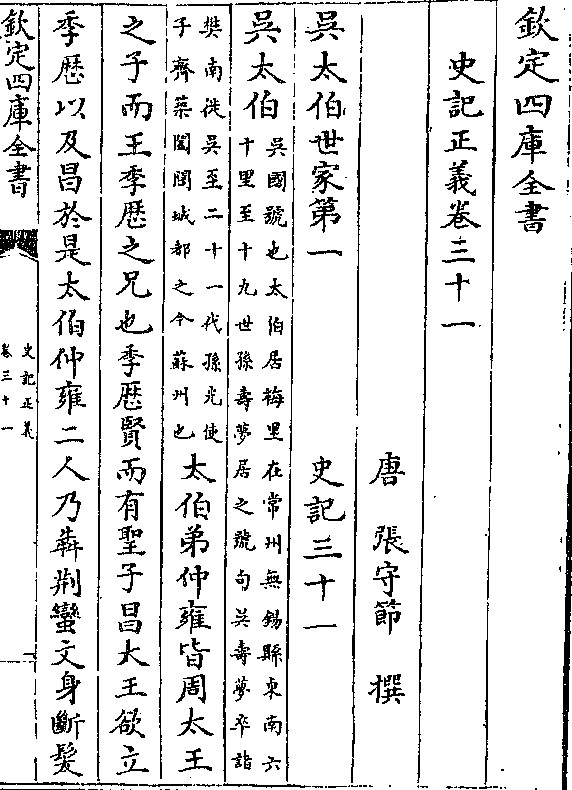 欽定四庫全書
史記正義卷三十一
唐 張守節 撰
吳太伯世家第一 史記三十一
吳太伯
吳國號也太伯居梅里在常州無錫縣東南六
十里至十九世孫壽夢居之號句吳壽夢卒諸
樊南徙吳至二十一代孫光使
子齊築闔閭城都之今蘇州也
太伯弟仲雍皆周太王
之子而王季歴之兄也季歴賢而有聖子昌大王欲立
季歴以及昌於是太伯仲雍二人乃犇荆蠻文身斷髮
欽定四庫全書
史記正義
卷三十一
一